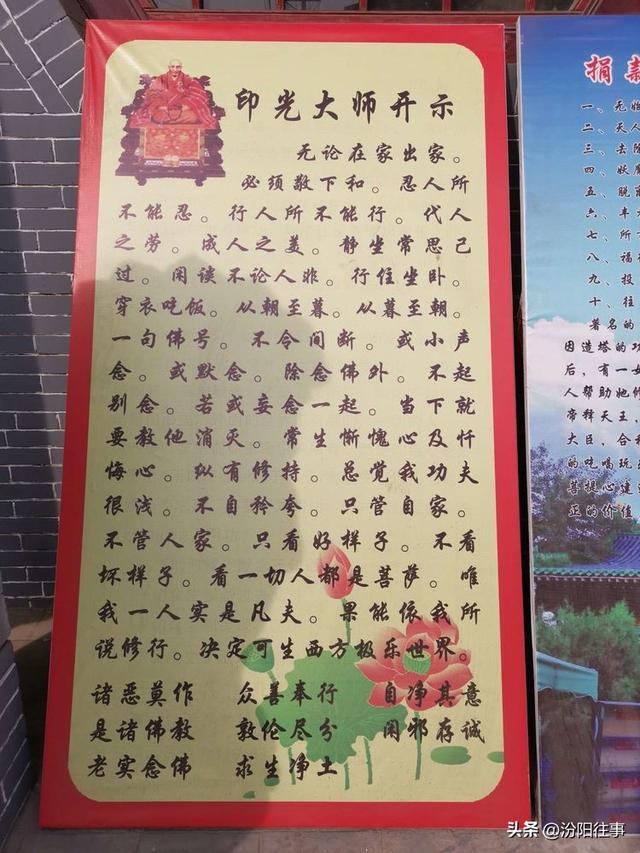 印光大师开示
无论在家出家。
必须敬下和。忍人所
不能忍。行人所不能行。代人
之劳。成人之美。静坐常思己
过。闲谈不论人非。行住坐卧。
穿衣吃饭。从朝至暮。从暮至朝。
一句佛号。不令间断。或小声
念。或默念。除念佛外。不起
别念。若或妄念一起。当下就
要教他消灭。常生惭愧心及忏
悔心。纵有修持。总觉我功夫
很浅。不自矜夸。只管自家。
不管人家。只看好样子。不看
坏样子。看一切人都是菩萨。唯
我一人实是凡夫。果能依我所
说修行。决定可生西方极乐世界。
诸恶莫作 众善奉行 自净其意
是诸佛教 敦伦尽分 闲邪存诚
老实念佛 求生净土
捐款
一、无始
二、天人
三、去除
四、妖魔
五、脱离
六、丰
七、所
八、福
九、投
十、往
著名的
因造塔的功
后，有一女
人帮助她修
帝释天王，
大臣，合
的吃喝玩
菩提心建
正的价值
头条 @汾阳往事